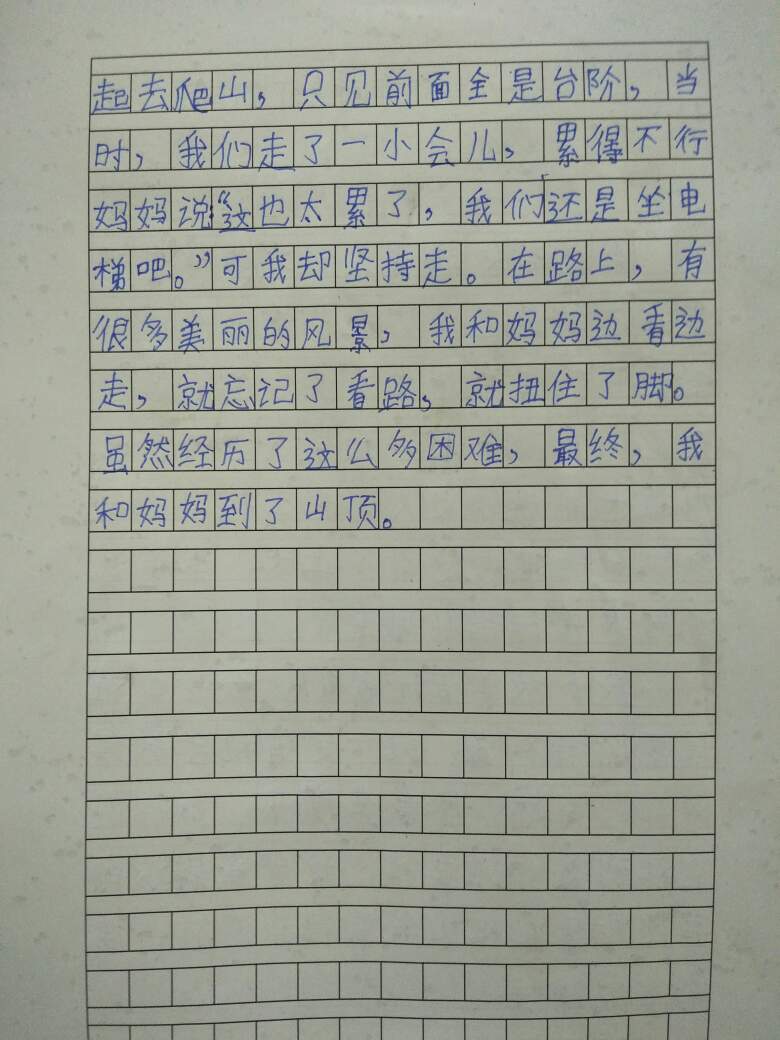 起去爬山，只见前面全是台阶，当
时，我们走了一小会儿，累得不行
妈妈说“这也太累了，我们还是坐电
梯吧。”可我却坚持走。在路上，有
很多美丽的风景，我和妈妈边看边
走，就忘记了看路，就扭住了脚。
虽然经历了这么多困难，最终，我
和妈妈到了山顶。